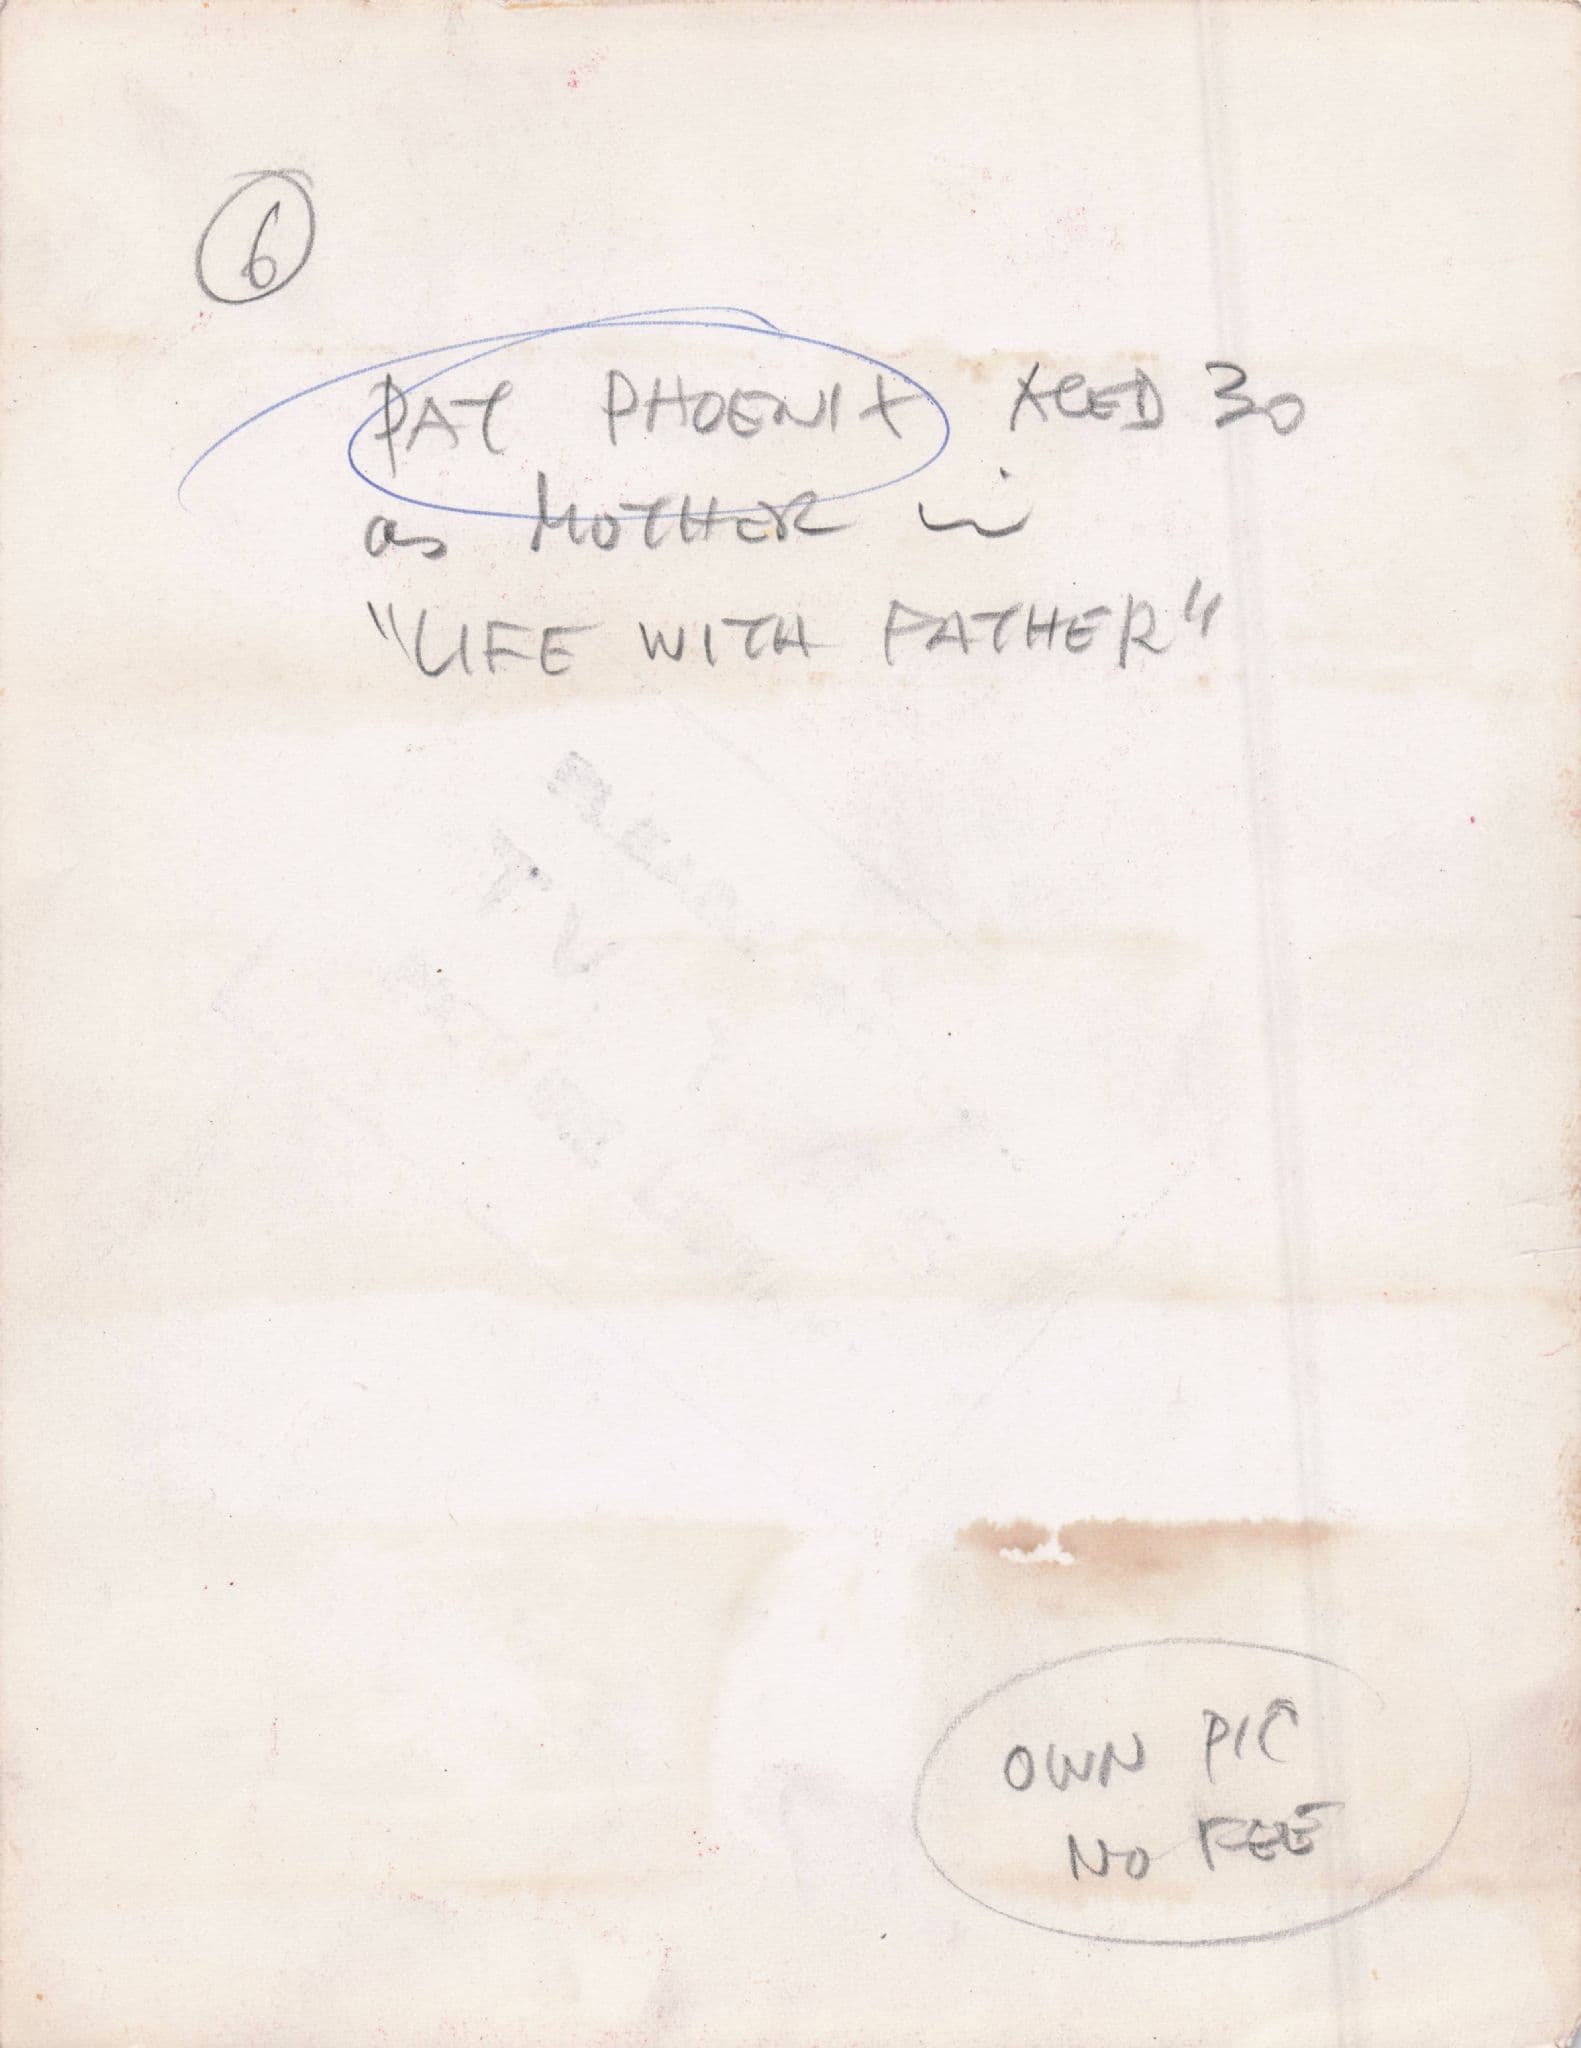 6
PAT PHOENIX AGED 30
as MOTHER in
"LIFE WITH FATHER"
OWN PIC
NO FEE